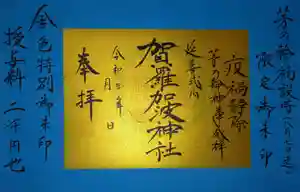 茅の輪舗設時(六月七日迄)
限定御朱印
疫病消除
茅の輪神事発祥
延喜式内
賀羅加波神社
令和三年
月
日
奉拝
金色特別御朱印
授与料 二千円也